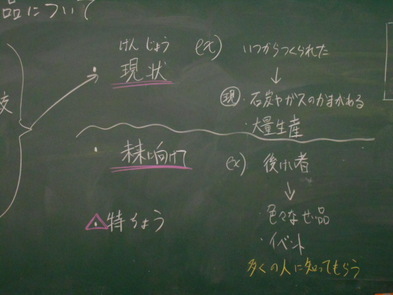 品について
げんじょう
現状
(ex) いつからつくられた
↓
現 ・石炭やガスのかまかわる
・大量生産
・未来に向けて
(ex) 後けい者
↓
色々なせい品
・イベント
多くの人に知ってもらう
・特ちょう